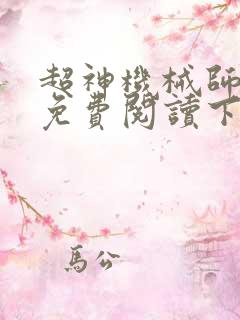 超神機械師
免費閱讀下
馬公